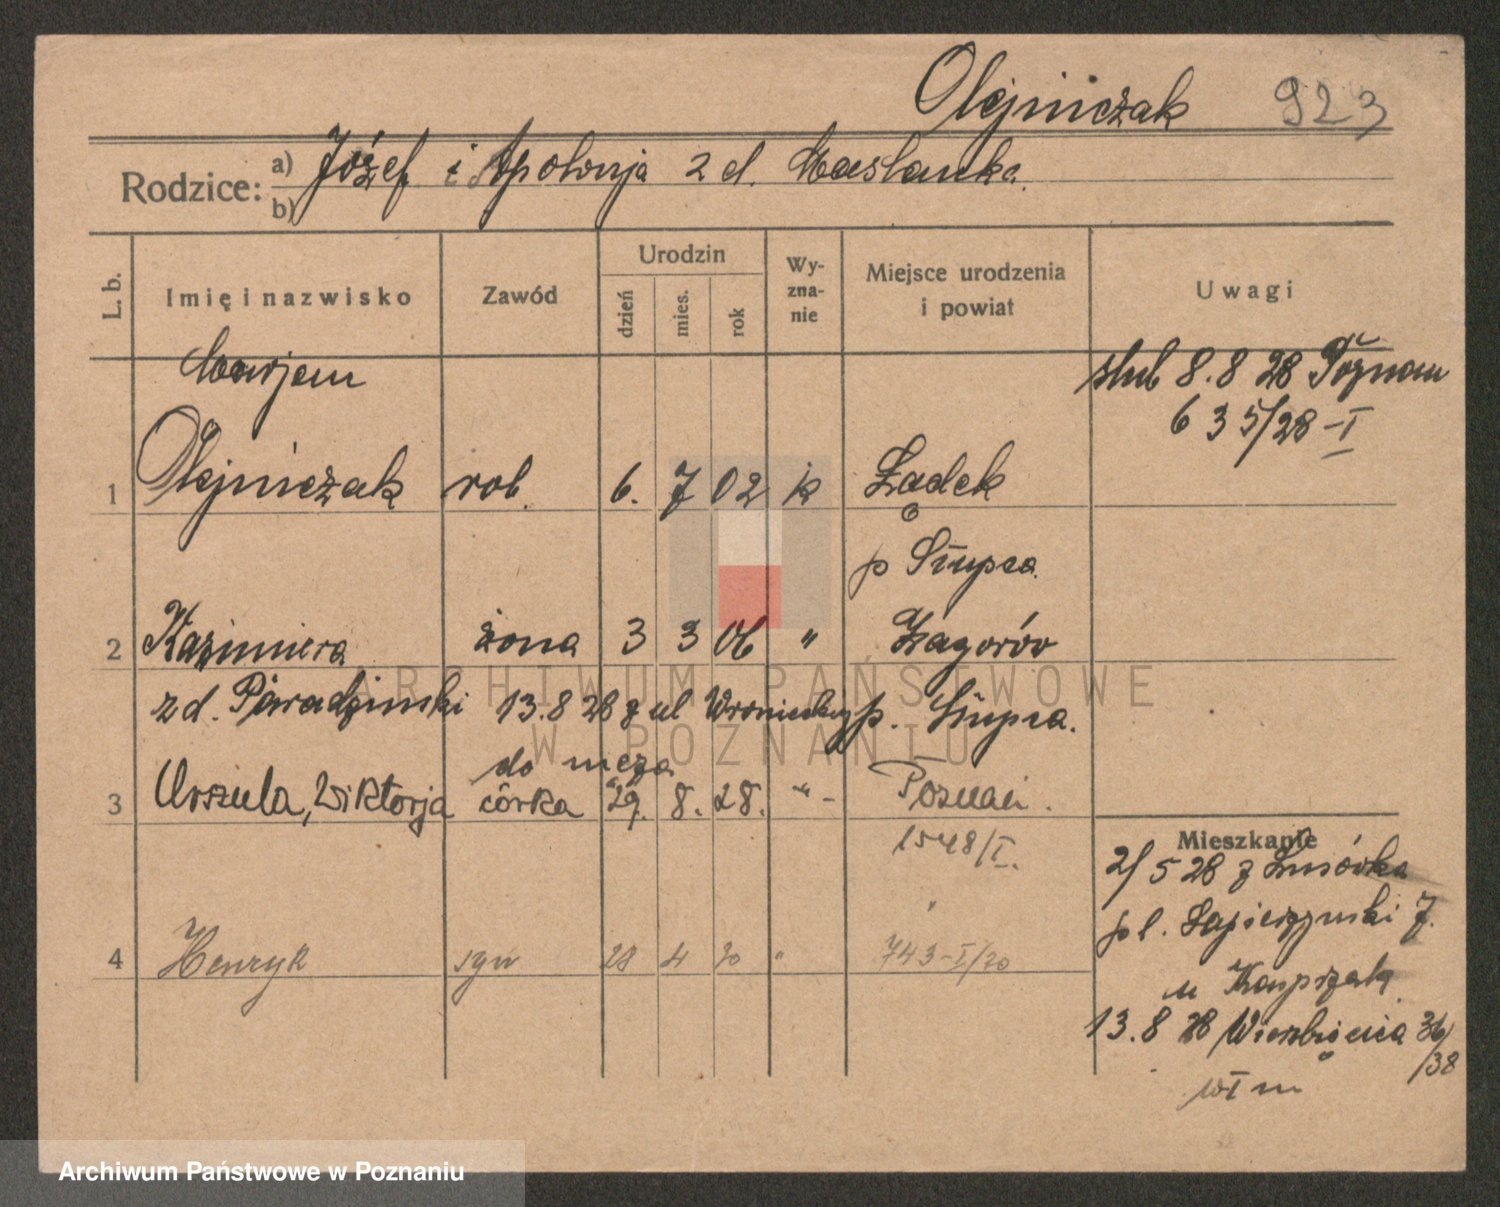 Olejniczak 923
Rodzice: a) Józef i Apolonja z d. Maslanka
b)
L. b. Imię i nazwisko Zawód Urodzin dzień mies. rok Wyznanie Miejsce urodzenia i powiat Uwagi
Marjan
ślub 8.8 28 Poznań
635/28-I
1 Olejniczak rob. 6. 7 02 k Lądek
p Słupca
2 Kazimiera żona 3 3 06 " Zagorów
z d. Paradzinski 13.8 28 z ul Wronieckiej p. Słupca.
do męża
3 Urszula, Wiktorja córka 29. 8. 28. -"- Poznań.
1548/I.
"
4 Henryk syn 28 4 30 " 743-I/30
Mieszkanie
2/5 28 z Lusówka
pl. Sapieżynski 7.
u Kasprzak
13.8 28 Wierzbięcice 36/38
ARCHIWUM PAŃSTWOWE
W POZNANIU
Archiwum Państwowe w Poznaniu